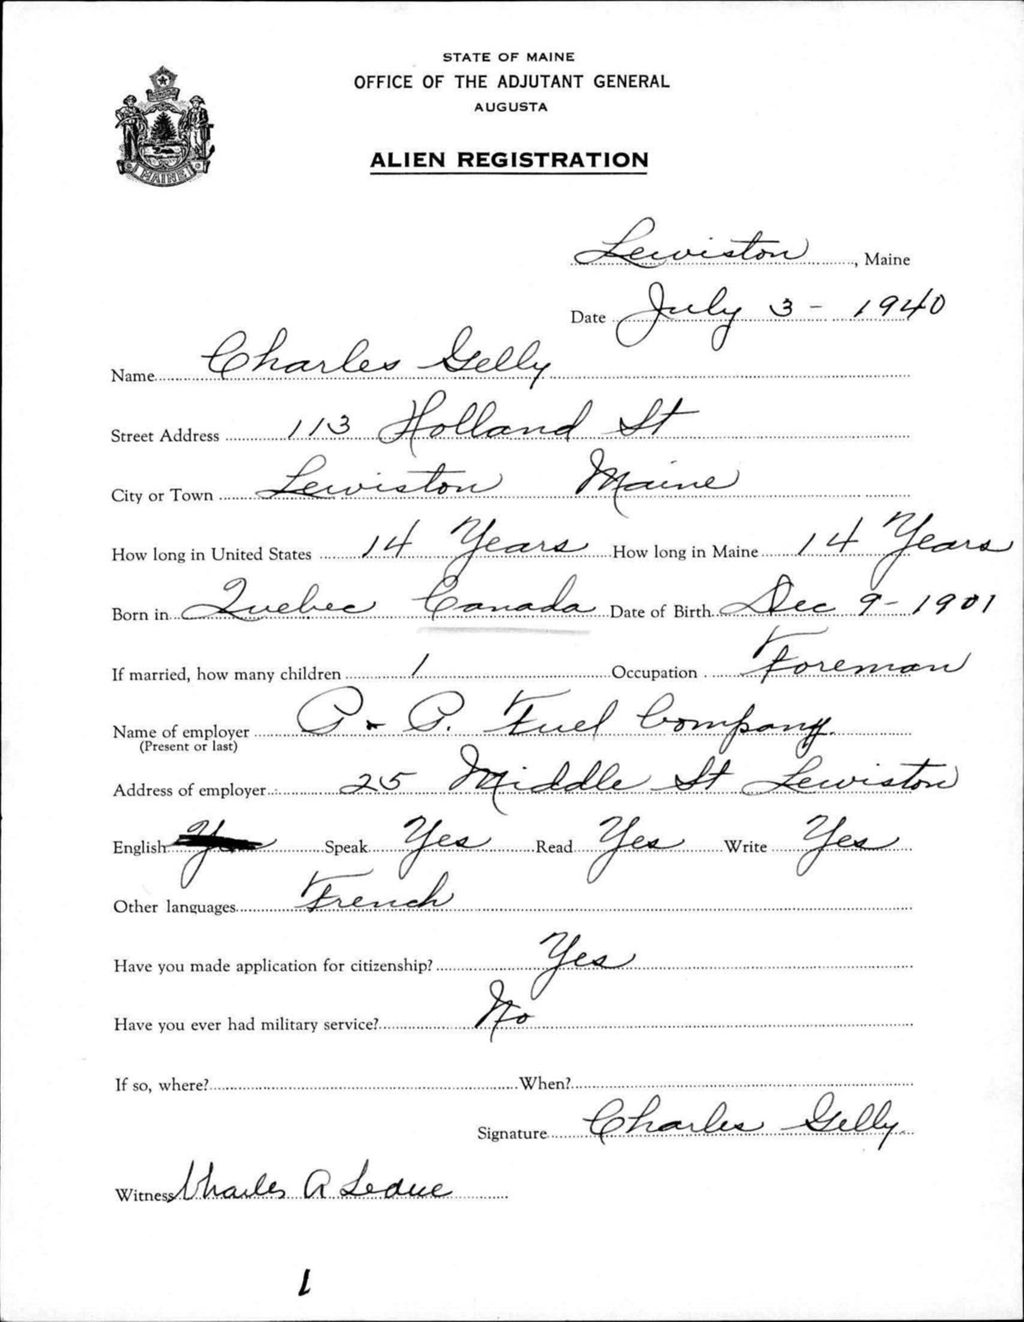 STATE OF MAINE
OFFICE OF THE ADJUTANT GENERAL
AUGUSTA
ALIEN REGISTRATION
MAINE
Lewiston, Maine
Date July 3 - 1940
Name Charles Gelly
Street Address 113 Holland St
City or Town Lewiston Maine
How long in United States 14 Years How long in Maine 14 Years
Born in Quebec Canada Date of Birth Dec 9 - 1901
If married, how many children 1 Occupation Foreman
Name of employer P - P. Fuel Company.
(Present or last)
Address of employer 25 Middle St Lewiston
English Speak Yes Read Yes Write Yes
Other languages French
Have you made application for citizenship? Yes
Have you ever had military service? No
If so, where? When?
Signature Charles Gelly
Witness Charles A Leduc
1